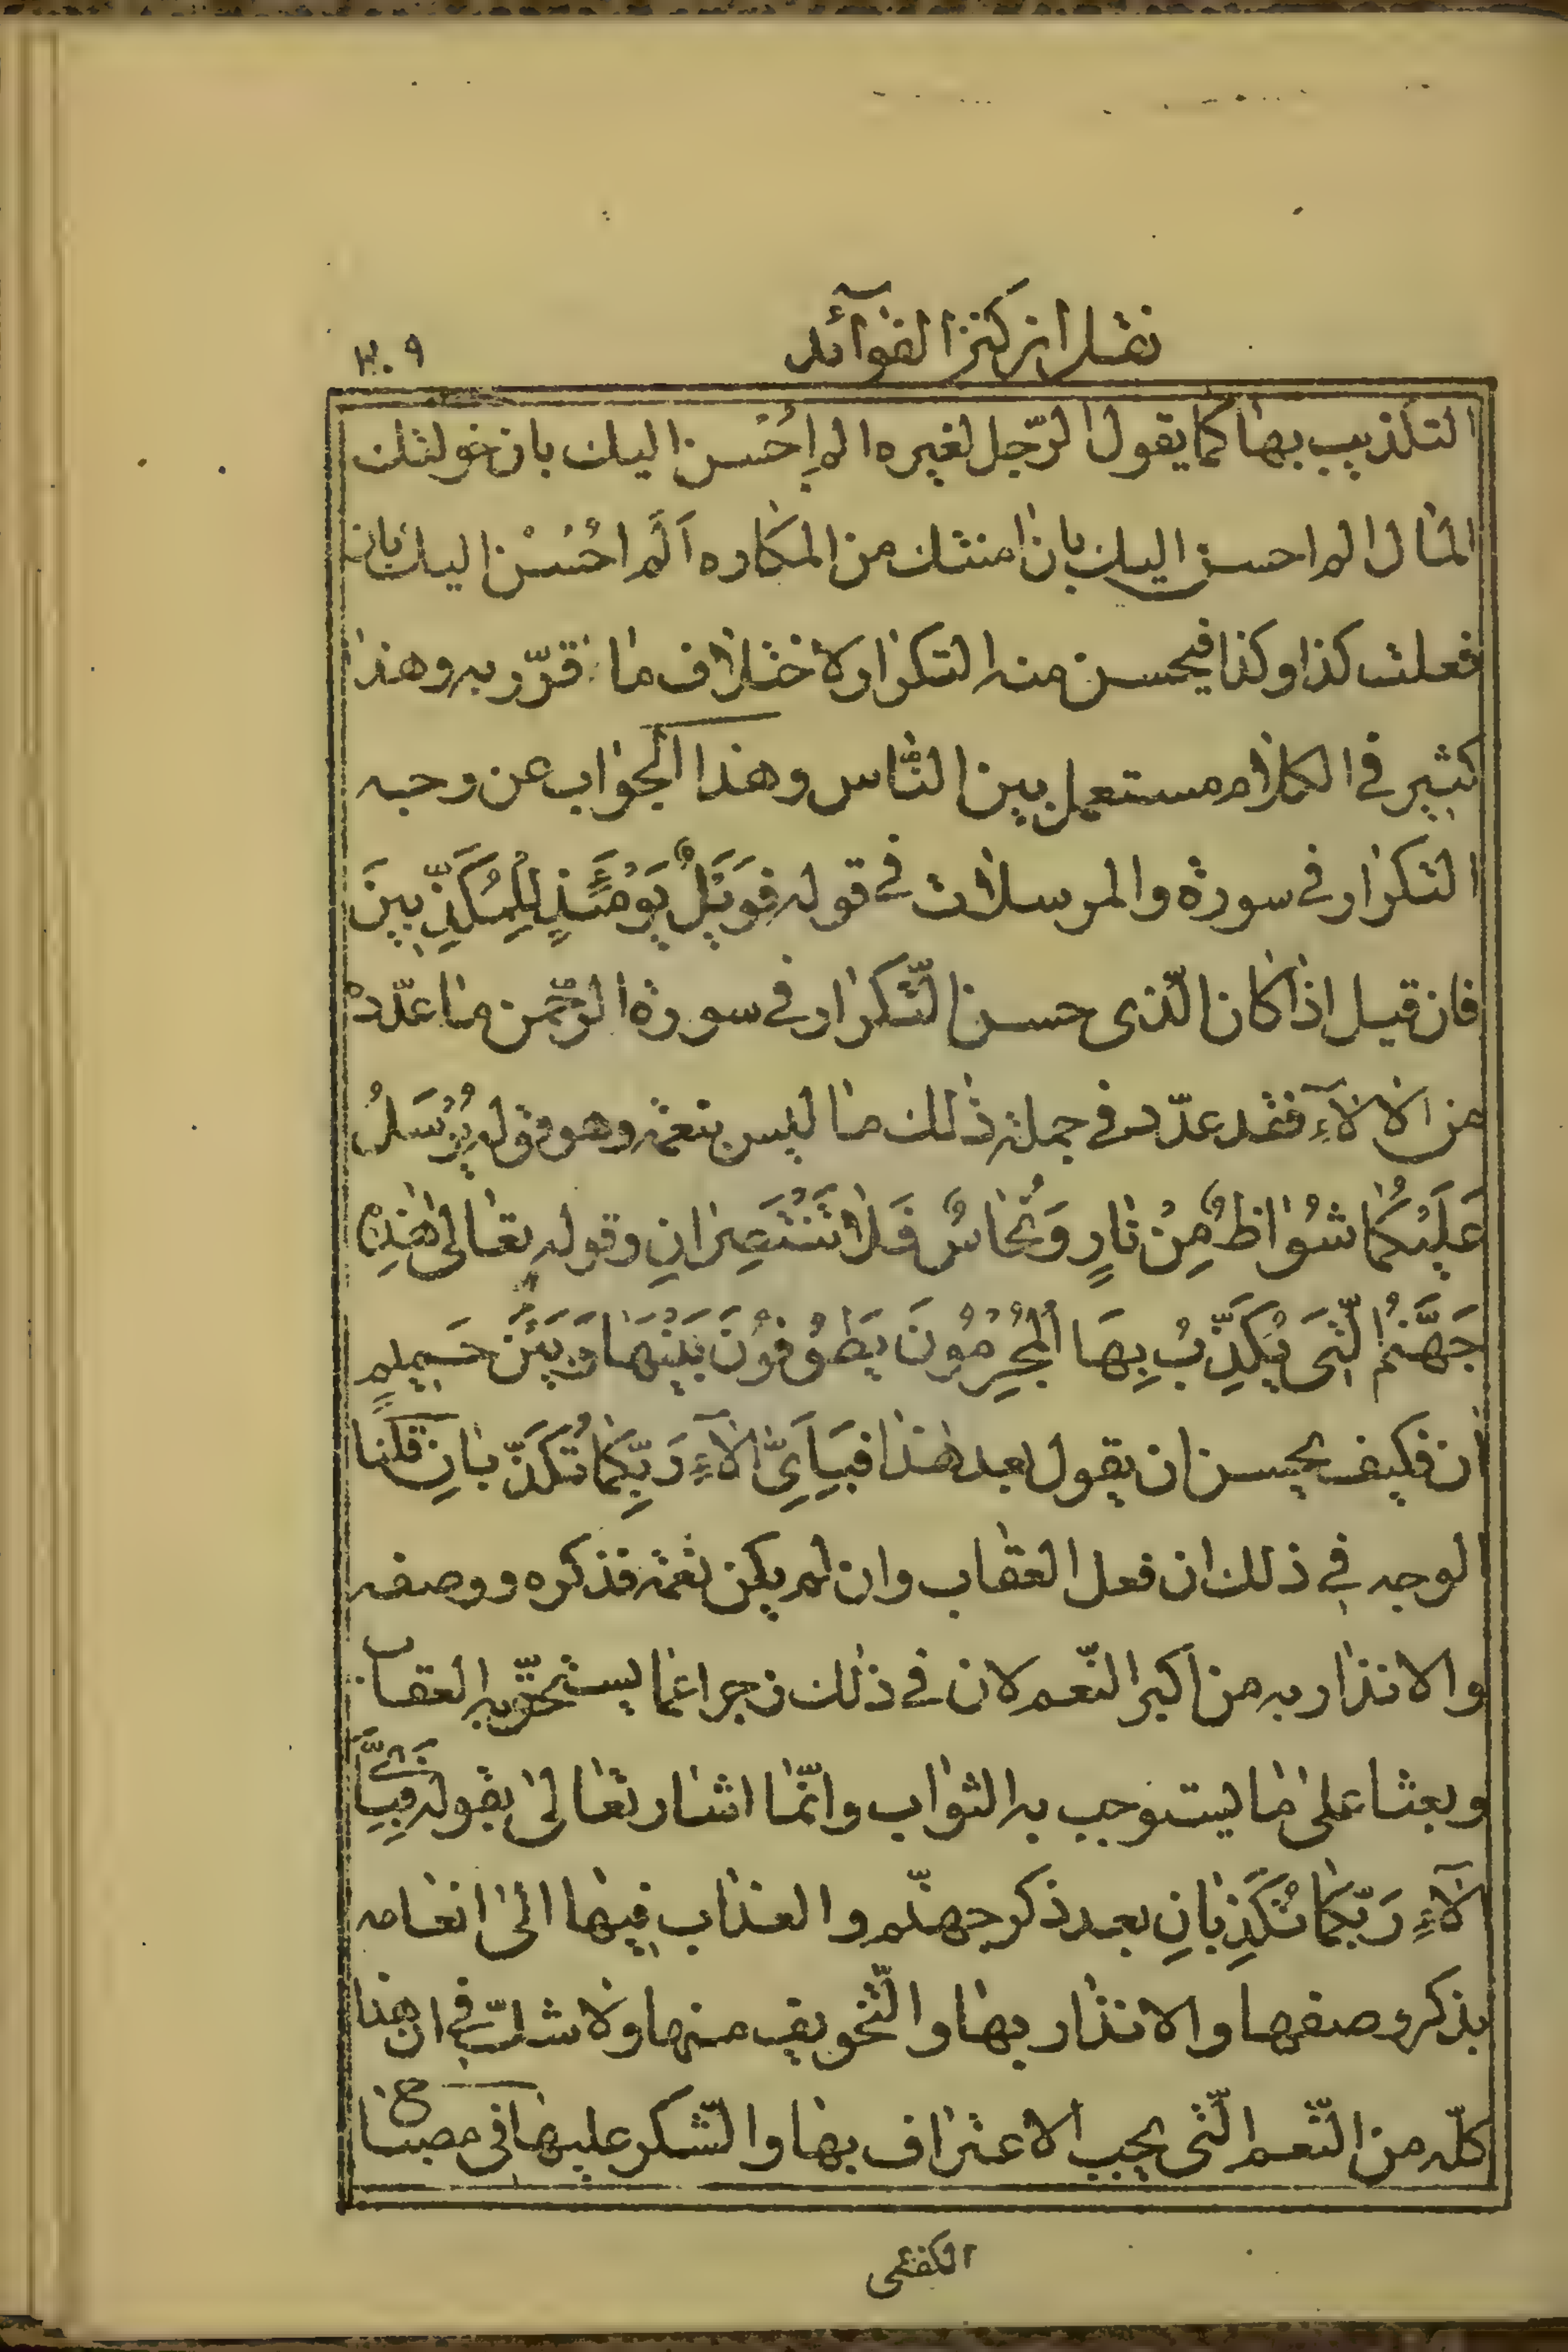 نقل از كنز الفوائد
۳۰۹
التكذيب بها كما يقول الرّجل لغيره الم اُحْسن اليك بان خولتك
المال الم احسن اليك بان امنتك من المكاره اَلَم احُسْن اليك بان
فعلت كذا وكذا فيحسن منه التكرار لاختلاف ما قرّر به وهذا
كثير فى الكلام مستعمل بين النّاس وهذا الجواب عن وجه
التكرار فى سورة والمرسلات فى قوله فَوَيْلٌ يَوْمَئِذٍ لِلْمُكَذِّبينَ
فان قيل اذا كان الّذى حسن التّكرار فى سورة الرّحمن ما عدّده
من الالآءِ فقد عدّد فى جملة ذلك ما ليس بنعمة وهو قوله يُرْسَلُ
عَلَيْكُما شُواظٌ مِنْ نارٍ وَنُحاسٌ فَلا تَنْتَصِرانِ وقوله تعالى هٰذِهِ
جَهَّنَمُ الّتى يُكَذِّبُ بِهَا الْمُجْرِمُونَ يَطُوفُونَ بَيْنَها وَبَيْنَ حَميمٍ
ان فكيف يحسن ان يقول بعد هذا فَبِاَىِّ الآءِ رَبِّكُما تُكَذِّبانِ قلنا
الوجه فى ذلك ان فعل العقاب وان لم يكن نعمة فذكره ووصفه
والانذار به من اكبر النّعم لان فى ذلك زجرا عما يستحقّ به العقاب
وبعثا على ما يستوجب به الثواب وانّما اشار تعالى بقوله فَبِاَىِّ
الآءِ رَبِّكُما تُكَذِّبانِ بعد ذكر جهنّم والعذاب فيها الى انعامه
بذكر وصفها والانذار بها والتّخويف منها ولا شك فى ان هذا
كلّه من النّعم الّتى يجب الاعتراف بها والشّكر عليها فى مصباح
الكفعمى